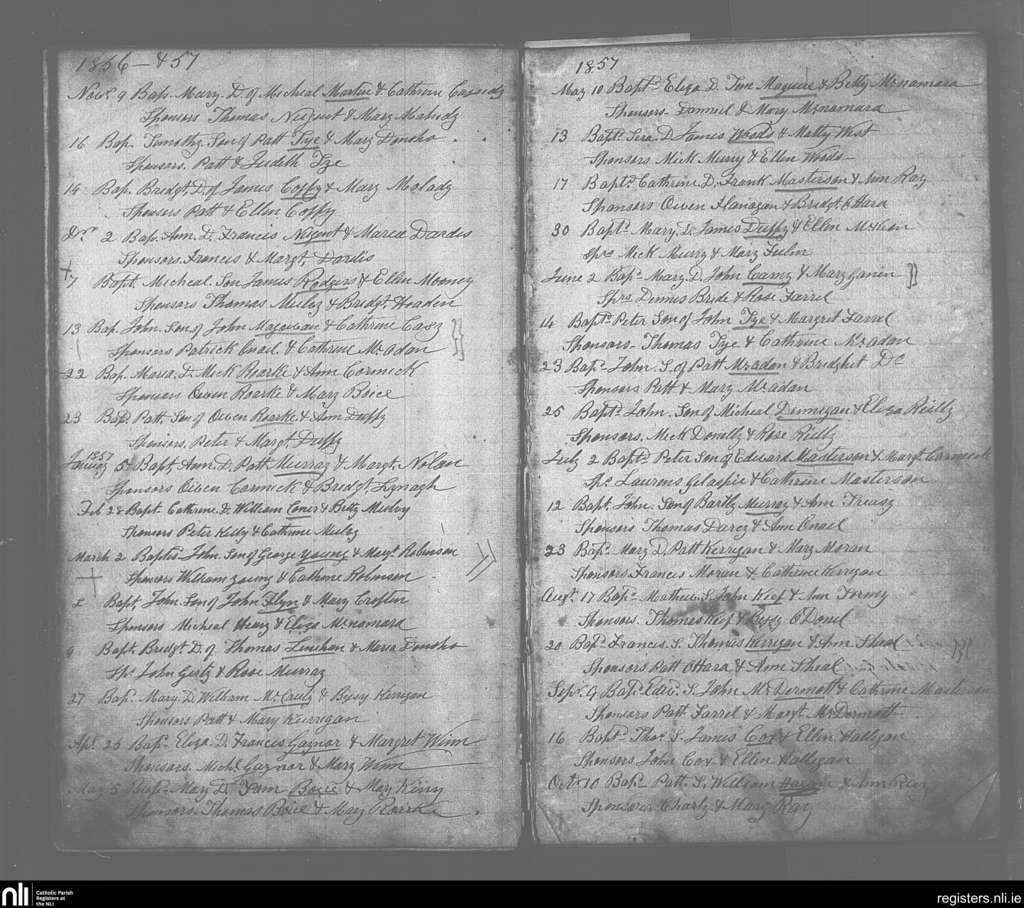 1856-457
Novr. 9 Bap. Mary. D. of Micheal Martin & Cathrine Cassidy
Sponsers Thomas Nugent & Mary
16 Bap. Timothy Son of Patt Tye & Mary Donoho
Sponsers. Patt & Judith Tye
19 Bap. Bridgt. D. of James Coffy & Mary Molady
Sponsers Patt & Ellen Coffy
Dr. 2 Bap. Ann. D. Francis Nugent & Maria Dardis
Sponsors. Francis & Margt. Dardis
7 Bapt. Micheal. Son James Rodgers & Ellen Mooney
Sponsors Thomas & Bridgt
13 Bap. John. Son of John & Cathrine Casey
Sponsors Patrick & Cathrine McAdan
22 Bap. Maria. D. Mick Roarke & Ann Cormick
Sponsors Owen Roarke & Mary Boice
23 Bap. Patt. Son of Owen Roarke & Ann Duffy
Sponsors. Peter & Margt. Duffy
1857
January 5 Bapt. Ann. D. Patt Murray & Margt. Nolan
Sponsors Owen Cormick & Bridgt. Lynagh
Feb 28 Bapt. Cathrine. D. William & Betty
Sponsors Peter Kelly & Cathrine
March 2 Baptd. John Son of George Young & Mayt. Robinson
Sponsors William Young & Cathrine Robinson
Bapt. John. Son of John Flyn & Mary Crofton
Sponsors Micheal & Eliza McNamara
9 Bapt. Bridgt. D. of Thomas Linehan & Maria Donoho
Sps. John & Rose Murray
27 Bap. Mary. D. William & Kerrigan
Sponsors Patt & Mary Kerrigan
Apl. 25 Bap. Eliza. D. Francis Gaynor & Margret Winn
Sponsors. Michl. Gaynor & Mary Winn
May 5 Bap. Mary D. Boice & Mary King
Sponsors. Thomas Boice & Mary Roarke
1857
May 10 Baptd. Eliza. D. Tim Maguire & Betty McNamara
Sponsors. Daniel & Mary McNamara
13 Bapt. D. James Woods & Matty West
Sponsors Mick Murry & Ellen Woods
17 Baptd. Cathrine. D. Frank Masterson & Ann Ray
Sponsors Owen Flanagan & Bridgt. OHara
30 Bapt. Mary. D. James Duffy & Ellen McKeon
Sprs. Mick Murry & Mary
June 2 Bap. Mary. D. John & Mary
Sprs. Dennis Bride & Rose Farrel
14 Bapt. Peter Son of John Tye & Margret Farrel
Sponsors. Thomas Tye & Cathrine McAdan
23 Bap. John. S. of Patt McAdan & Bridghet Do
Sponsors Patt & Mary McAdan
25 Bapt. John. Son of Micheal Dunnegan & Eliza Reilly
Sponsors. Mick Donolly & Rose Reilly
July 2 Bapt. Peter Son of Edward Masterson & Margt. Cormick
Sps. Laurens Gilaspie & Cathrine Masterson
12 Bapt. John. Son of Bartly Murray & Ann Treasy
Sponsors Thomas Darcy & Ann
23 Bap. Mary D. Patt Kerrigan & Mary Moran
Sponsors Francis Moran & Cathrine Kerrigan
Augt. 17 Bap. Mathew. S. John Keef & Ann
Sponsors. Thomas Keef & ODonel
20 Bap. Francis. S. Thomas Kerrigan & Ann Sheal
Sponsors Patt OHara & Ann Sheal
Sepr. 9 Bap. Edwd. S. John McDermott & Cathrine Masterson
Sponsors Patt. Farrel & Margt. McDermott
16 Bapt. Thos. S. James Cox & Ellen Halligan
Sponsors John Cox & Ellen Halligan
Octr. 10 Bap. Patt. S. William & Ann Ray
Sponsors Charly & Mary Ray
nli
Catholic Parish
Registers at
the NLI
registers.nli.ie